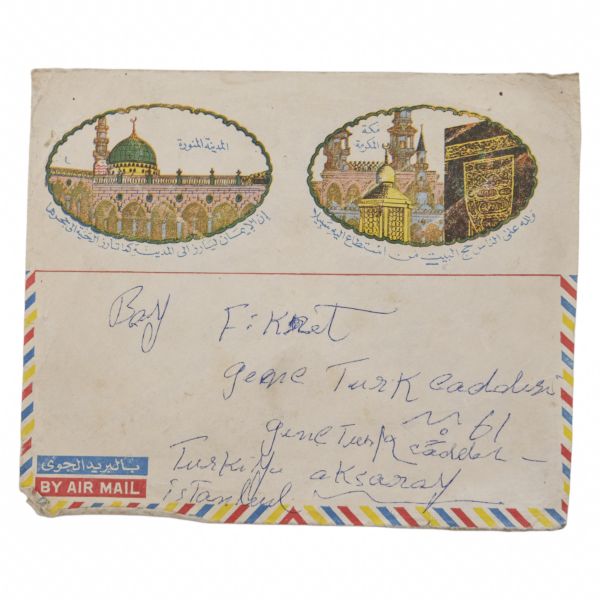 المدينة المنورة
إن الإيمان ليأرز الى المدينة كما تأرز الحية الى جحرها
مكة
المكرمة
ولله على الناس حج البيت من استطاع اليه سبيلا
Bay Fikret
genc Turk caddesi
No 61
genc Turk caddesi
Turkiye aksaray
istanbul
بالبريد الجوى
BY AIR MAIL